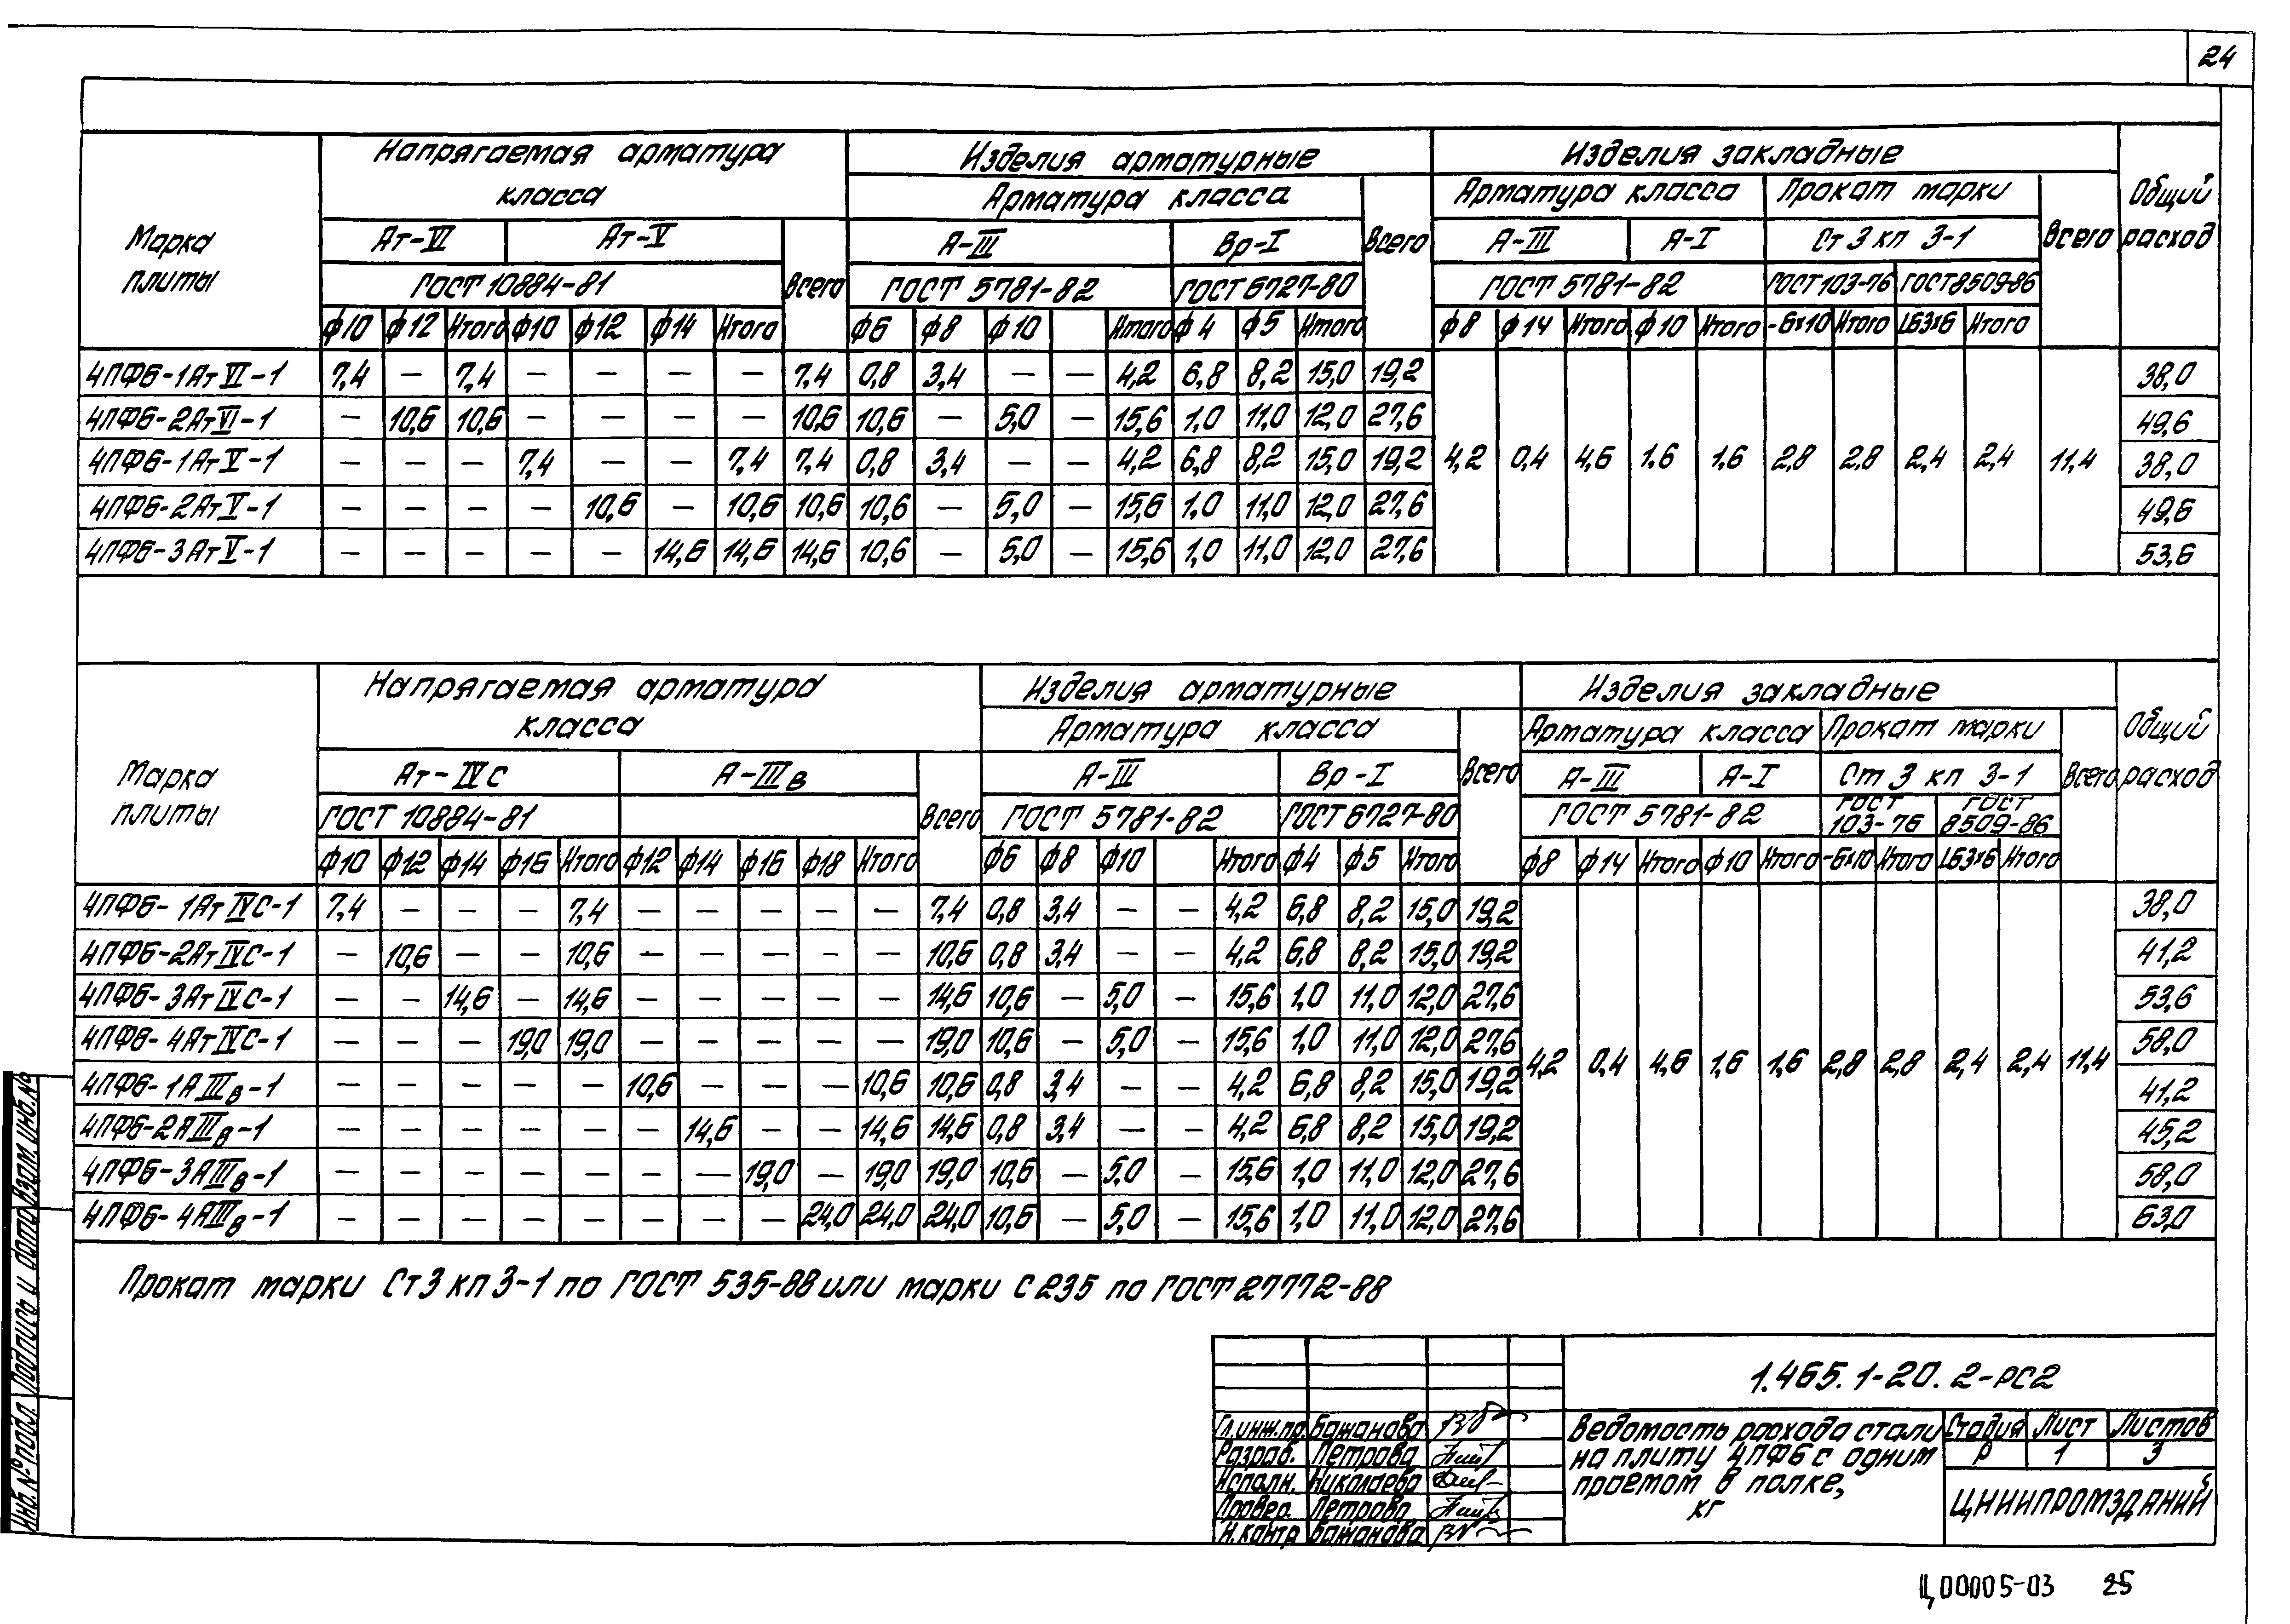 24
Марка плиты
Напрягаемая арматура класса
Изделия арматурные
Изделия закладные
Общий расход
Арматура класса
Всего
Арматура класса
Прокат марки
Всего
Ат-VI
Ат-V
Всего
А-III
Вр-I
А-III
А-I
Ст 3 кп 3-1
ГОСТ 10884-81
ГОСТ 5781-82
ГОСТ 6727-80
ГОСТ 5781-82
ГОСТ 103-76
ГОСТ 8509-86
ф10 ф12 Итого ф10 ф12 ф14 Итого ф6 ф8 ф10 Итого ф4 ф5 Итого ф8 ф14 Итого ф10 Итого -6х10 Итого L63х6 Итого
4ПФ6-1АтVI-1 7,4 — 7,4 — — — — 7,4 0,8 3,4 — — 4,2 6,8 8,2 15,0 19,2 38,0
4ПФ6-2АтVI-1 — 10,6 10,6 — — — — 10,6 10,6 — 5,0 — 15,6 1,0 11,0 12,0 27,6 49,6
4ПФ6-1АтV-1 — — — 7,4 — — 7,4 7,4 0,8 3,4 — — 4,2 6,8 8,2 15,0 19,2 4,2 0,4 4,6 1,6 1,6 2,8 2,8 2,4 2,4 11,4 38,0
4ПФ6-2АтV-1 — — — — 10,6 — 10,6 10,6 10,6 — 5,0 — 15,6 1,0 11,0 12,0 27,6 49,6
4ПФ6-3АтV-1 — — — — — 14,6 14,6 14,6 10,6 — 5,0 — 15,6 1,0 11,0 12,0 27,6 53,6
Марка плиты
Напрягаемая арматура класса
Изделия арматурные
Изделия закладные
Общий расход
Арматура класса
Всего
Арматура класса
Прокат марки
Всего
Ат-IVС
А-IIIв
Всего
А-III
Вр-I
А-III
А-I
Ст 3 кп 3-1
ГОСТ 10884-81
ГОСТ 5781-82
ГОСТ 6727-80
ГОСТ 5781-82
ГОСТ 103-76
ГОСТ 8509-86
ф10 ф12 ф14 ф16 Итого ф12 ф14 ф16 ф18 Итого ф6 ф8 ф10 Итого ф4 ф5 Итого ф8 ф14 Итого ф10 Итого -6х10 Итого L63х6 Итого
4ПФ6-1АтIVС-1 7,4 — — — 7,4 — — — — — 7,4 0,8 3,4 — — 4,2 6,8 8,2 15,0 19,2 38,0
4ПФ6-2АтIVС-1 — 10,6 — — 10,6 — — — — — 10,6 0,8 3,4 — — 4,2 6,8 8,2 15,0 19,2 41,2
4ПФ6-3АтIVС-1 — — 14,6 — 14,6 — — — — — 14,6 10,6 — 5,0 — 15,6 1,0 11,0 12,0 27,6 53,6
4ПФ6-4АтIVС-1 — — — 19,0 19,0 — — — — — 19,0 10,6 — 5,0 — 15,6 1,0 11,0 12,0 27,6 58,0
4,2 0,4 4,6 1,6 1,6 2,8 2,8 2,4 2,4 11,4
4ПФ6-1АIIIв-1 — — — — — 10,6 — — — 10,6 10,6 0,8 3,4 — — 4,2 6,8 8,2 15,0 19,2 41,2
4ПФ6-2АIIIв-1 — — — — — — 14,6 — — 14,6 14,6 0,8 3,4 — — 4,2 6,8 8,2 15,0 19,2 45,2
4ПФ6-3АIIIв-1 — — — — — — — 19,0 — 19,0 19,0 10,6 — 5,0 — 15,6 1,0 11,0 12,0 27,6 58,0
4ПФ6-4АIIIв-1 — — — — — — — — 24,0 24,0 24,0 10,6 — 5,0 — 15,6 1,0 11,0 12,0 27,6 63,0
Прокат марки Ст3 кп 3-1 по ГОСТ 535-88 или марки С 235 по ГОСТ 27772-88
Взам. инв. №
Подпись и дата
Инв. № подл.
1.465.1-20.2-РС2
Гл.инж.пр. Бажанова
Разраб. Петрова
Исполн. Николаева
Провер. Петрова
Н.контр Бажанова
Ведомость расхода стали
на плиту 4ПФ6 с одним
проемом в полке,
кг
Стадия Лист Листов
Р 1 3
ЦНИИПРОМЗДАНИЙ
Ц00005-03 25